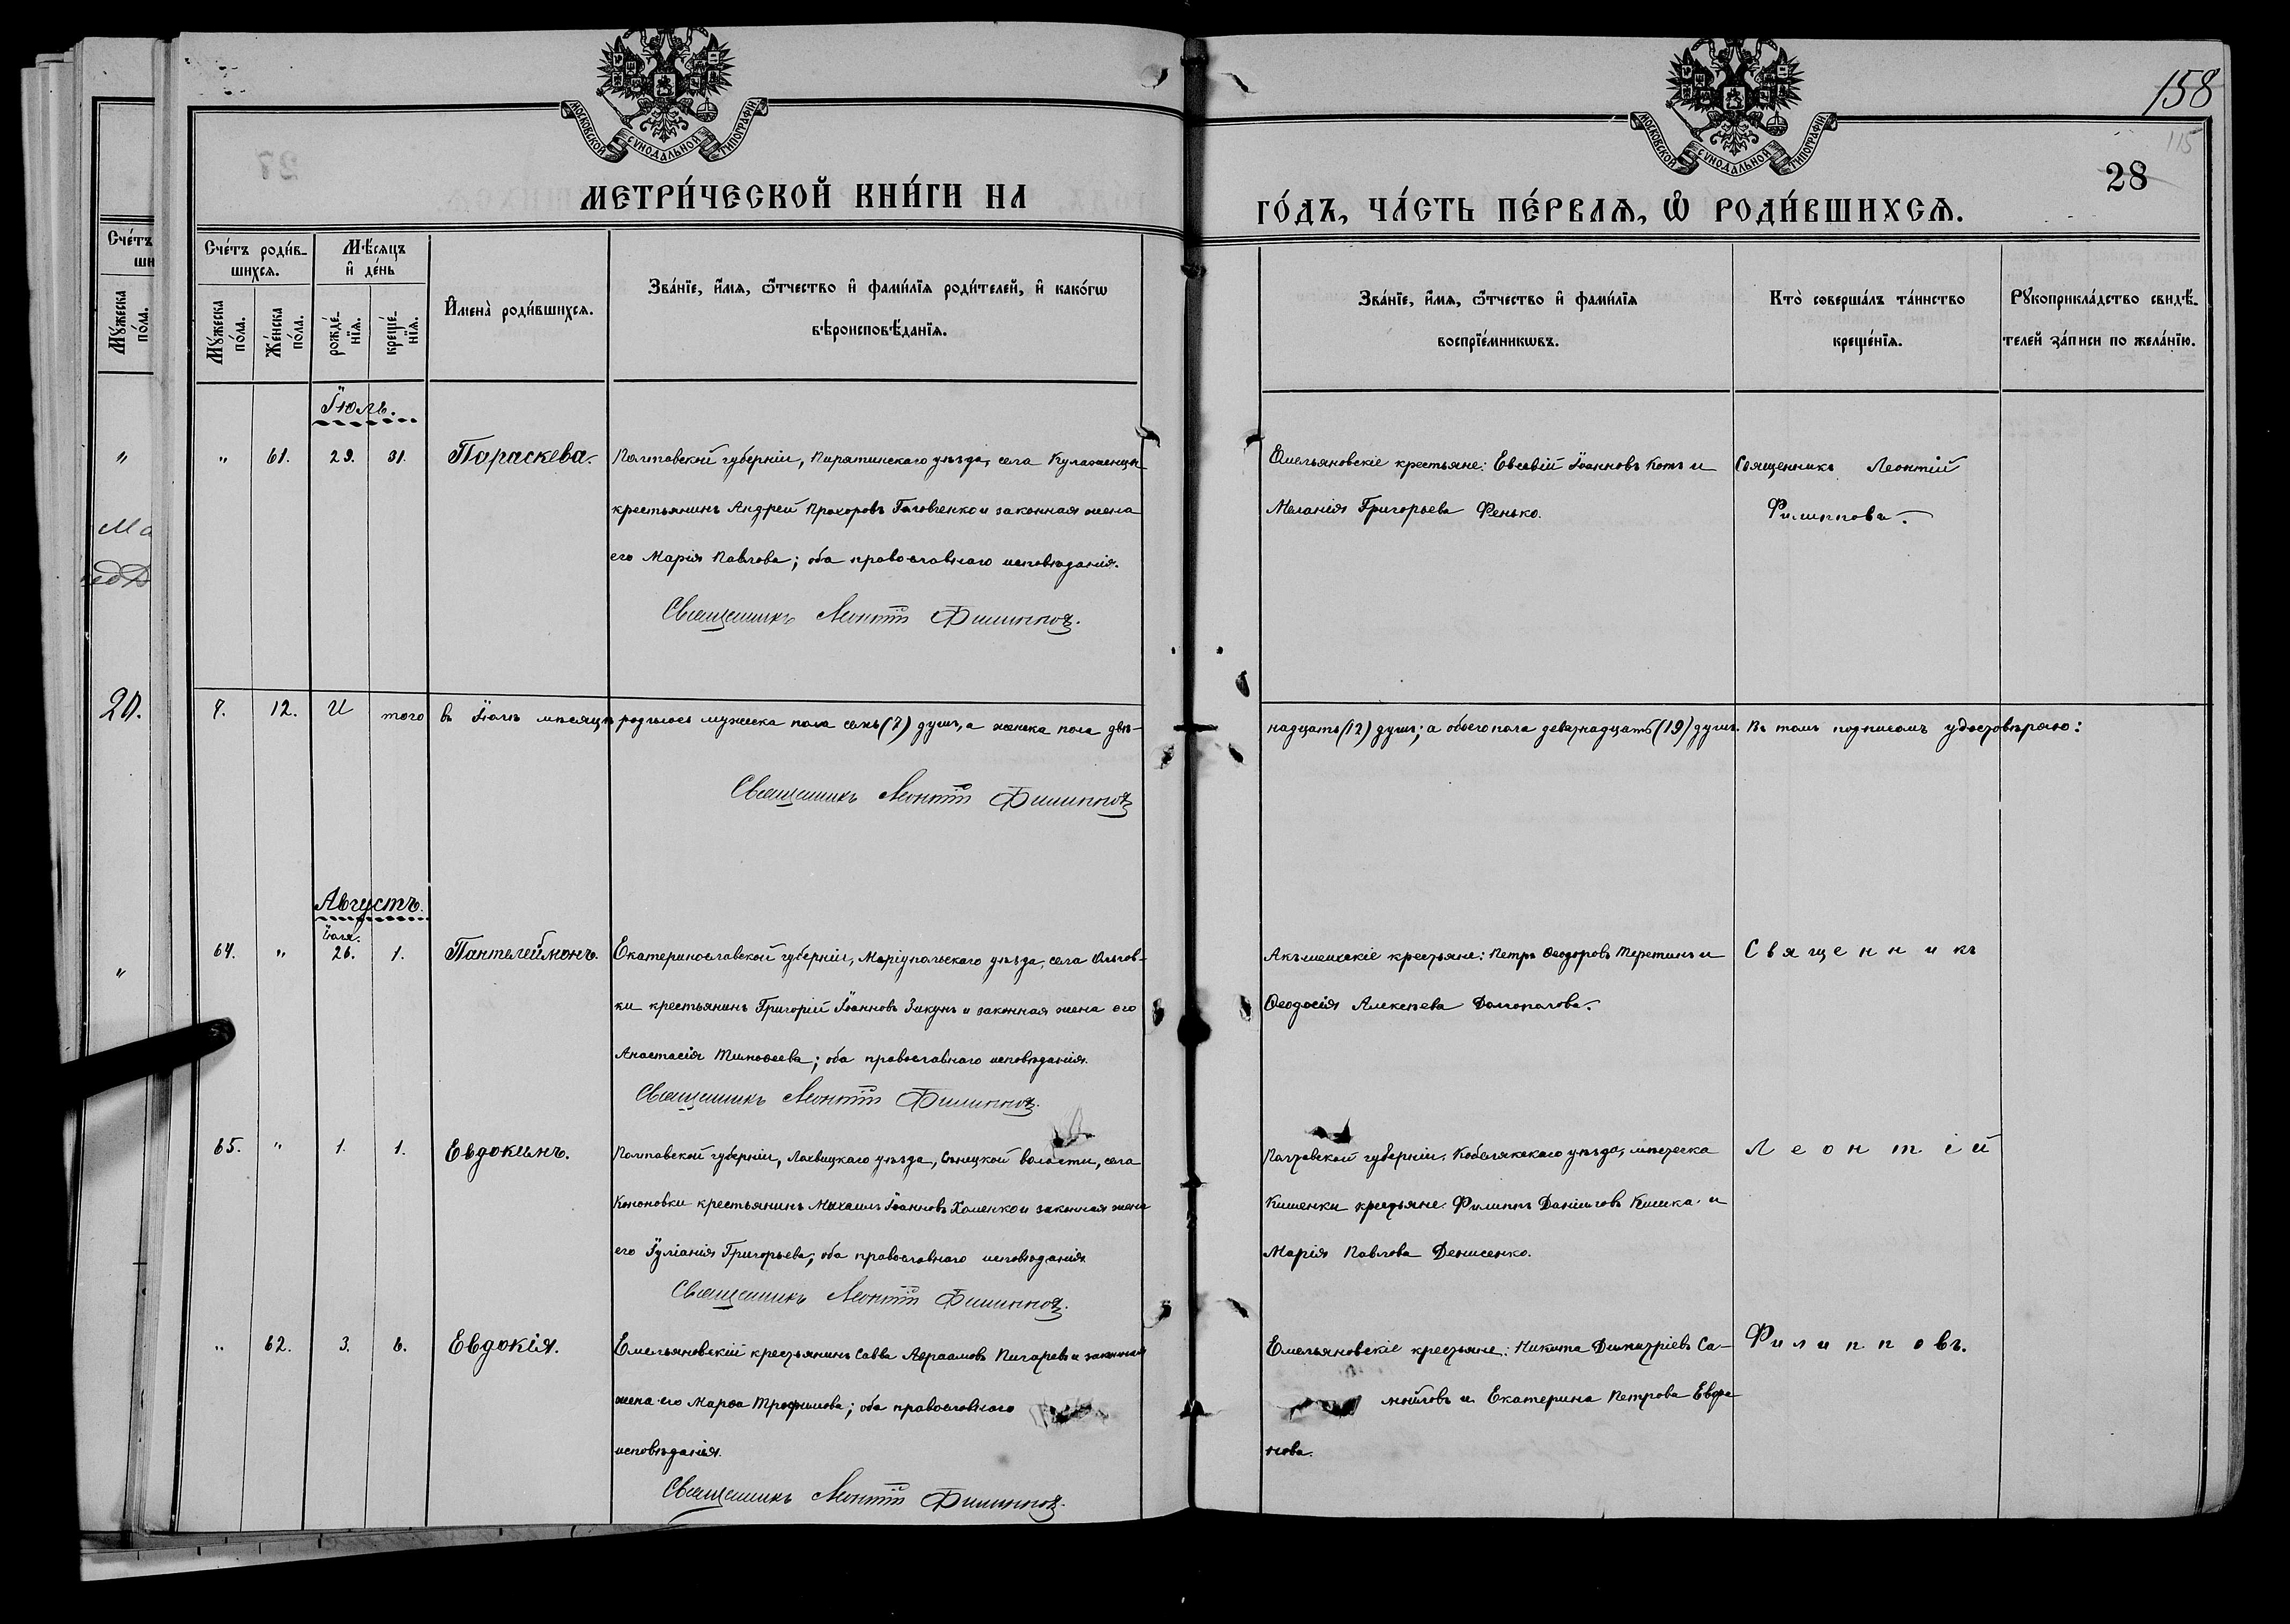 МОСКОВСКОЙ СѴНОДАЛЬНОЙ ТИПОГРАФІИ
МОСКОВСКОЙ СѴНОДАЛЬНОЙ ТИПОГРАФІИ
158
115
28
МЕТРИ́ЧЕСКОЙ КНИ́ГИ НА
ГО́ДЪ, ЧА́СТЬ ПЕ́РВАѦ, Ѡ҆ РОДИ́ВШИХСѦ.
Сче́тъ роди́в-
шихсѧ.
Мꙋ́жеска по́ла.
Же́нска по́ла.
Мѣ́сѧцъ
и҆ де́нь
рожде́-
нїѧ.
креще́-
нїѧ.
И҆мена̀ роди́вшихсѧ.
Зва́нїе, и҆́мѧ, ѻ҆́тчество и҆ фами́лїѧ роди́телей, и҆ како́гѡ
вѣроисповѣ́данїѧ.
Зва́нїе, и҆́мѧ, ѻ҆́тчество и҆ фами́лїѧ
воспрїе́мникѡвъ.
Кто̀ соверша́лъ та́инство
креще́нїѧ.
Рꙋкоприкла́дство свидѣ́-
телей за́писи по жела́нїю.
Іюль.
" 61. 29. 31. Параскева. Полтавской губерніи, Пирятинскаго уѣзда, села Кулаженцы
крестьянинъ Андрей Прохоровъ и законная жена
его Марія Павлова; оба православнаго исповѣданія.
Священникъ Леонтій Филипповъ.
Омельяновскіе крестьяне: Евсевій Іоанновъ Котъ и
Меланія Григорьева Фенько.
Священникъ Леонтій
Филипповъ.
20.
7. 12. Итого въ Іюлѣ мѣсяцѣ родилось мужеска пола семь (7) душъ, а женска пола двѣ-
надцать (12) душъ; а обоего пола девятнадцать (19) душъ. Въ томъ подписомъ удостовѣряю:
Священникъ Леонтій Филипповъ
Августъ.
Іюля.
64. " 26. 1. Пантелеймонъ. Екатеринославской губерніи, Маріупольскаго уѣзда, села Ольгов-
ки крестьянинъ Григорій Іоанновъ Зикунъ и законная жена его
Анастасія Тимоѳеева; оба православнаго исповѣданія.
Священникъ Леонтій Филипповъ.
Акъ-шеихскіе крестьяне: Петръ Ѳеодоровъ Теретинъ и
Ѳеодосія Алексѣева Долгополова.
Священникъ
65. " 1. 1. Евдокимъ. Полтавской губерніи, Лохвицкаго уѣзда, Сѣнецкой волости, села
Кононовки крестьянинъ Михаилъ Іоанновъ Хоменко и законная жена
его Іуліанія Григорьева; оба православнаго исповѣданія
Священникъ Леонтій Филипповъ.
Полтавской губерніи, Кобелякскаго уѣзда, мѣстечка
Кишенки крестьяне: Филиппъ Даніиловъ Кишка и
Марія Павлова Денисенко.
Леонтій
" 62. 3. 6. Евдокія. Емельяновскій крестьянинъ Савва Авраамовъ Пичаревъ и законная
жена его Марѳа Трофимова; оба православнаго
исповѣданія.
Священникъ Леонтій Филипповъ.
Емельяновскіе крестьяне: Никита Димитріевъ Са-
мойловъ и Екатерина Петрова Евфа
нова.
Филипповъ.